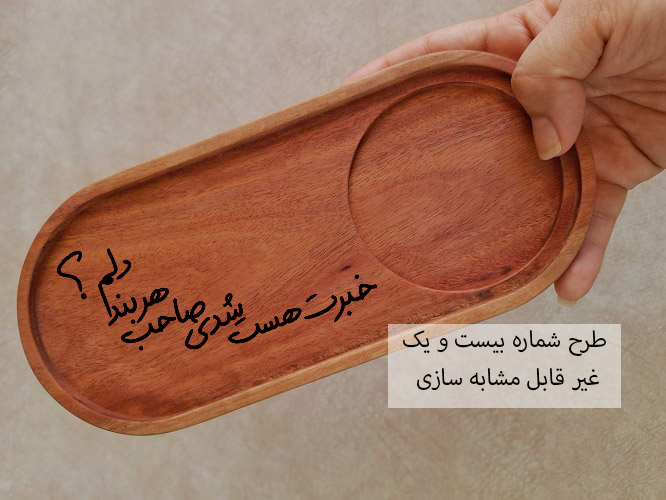 خبرت هست شدی صاحب هر بند دلم ؟
طرح شماره بیست و یک
غیر قابل مشابه سازی